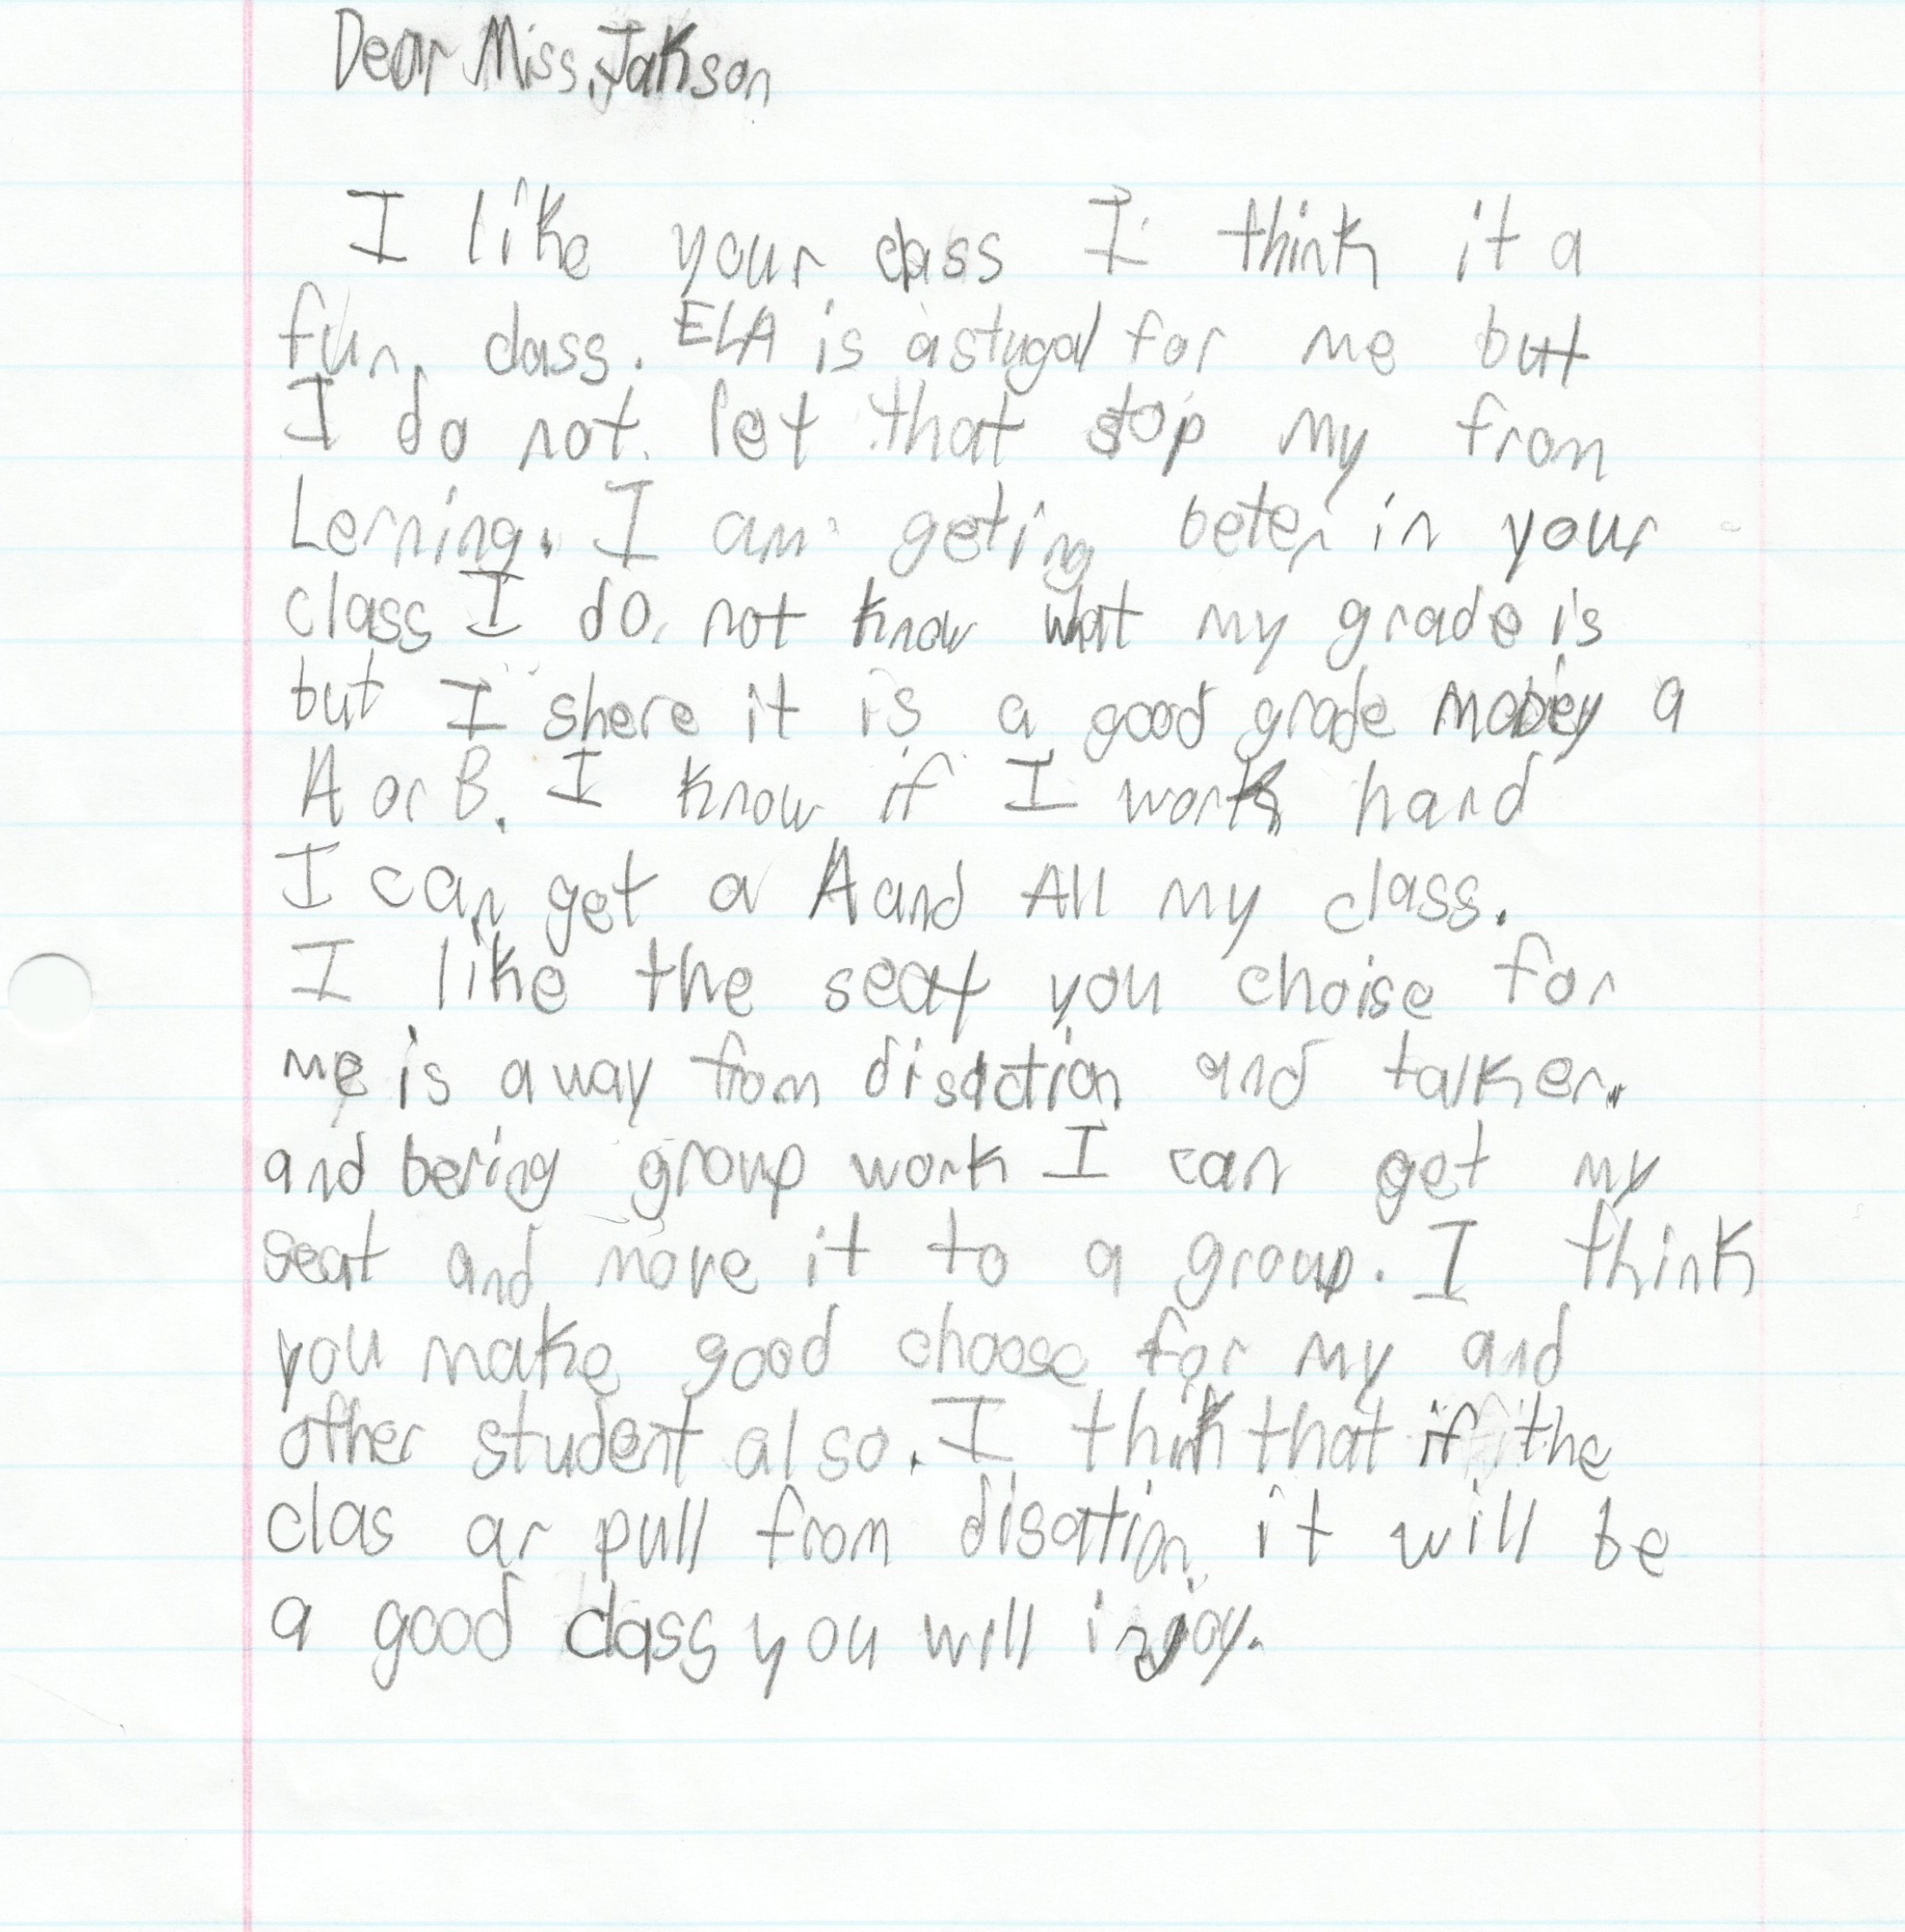 Dear Miss. Jakson
I like your class I think it a
fun class. ELA is a stugal for me but
I do not let that stop my from
Lerning. I am geting beter in your
class I do not know what my grade is
but I shere it is a good grade mabey a
A or B. I know if I work hard
I can get a A and All my class.
I like the seat you choise for
me is away from disaction and talker.
and bering group work I can get my
seat and move it to a group. I think
you make good choose for my and
other student also. I think that if the
clas ar pull from disation it will be
a good class you will injoy.